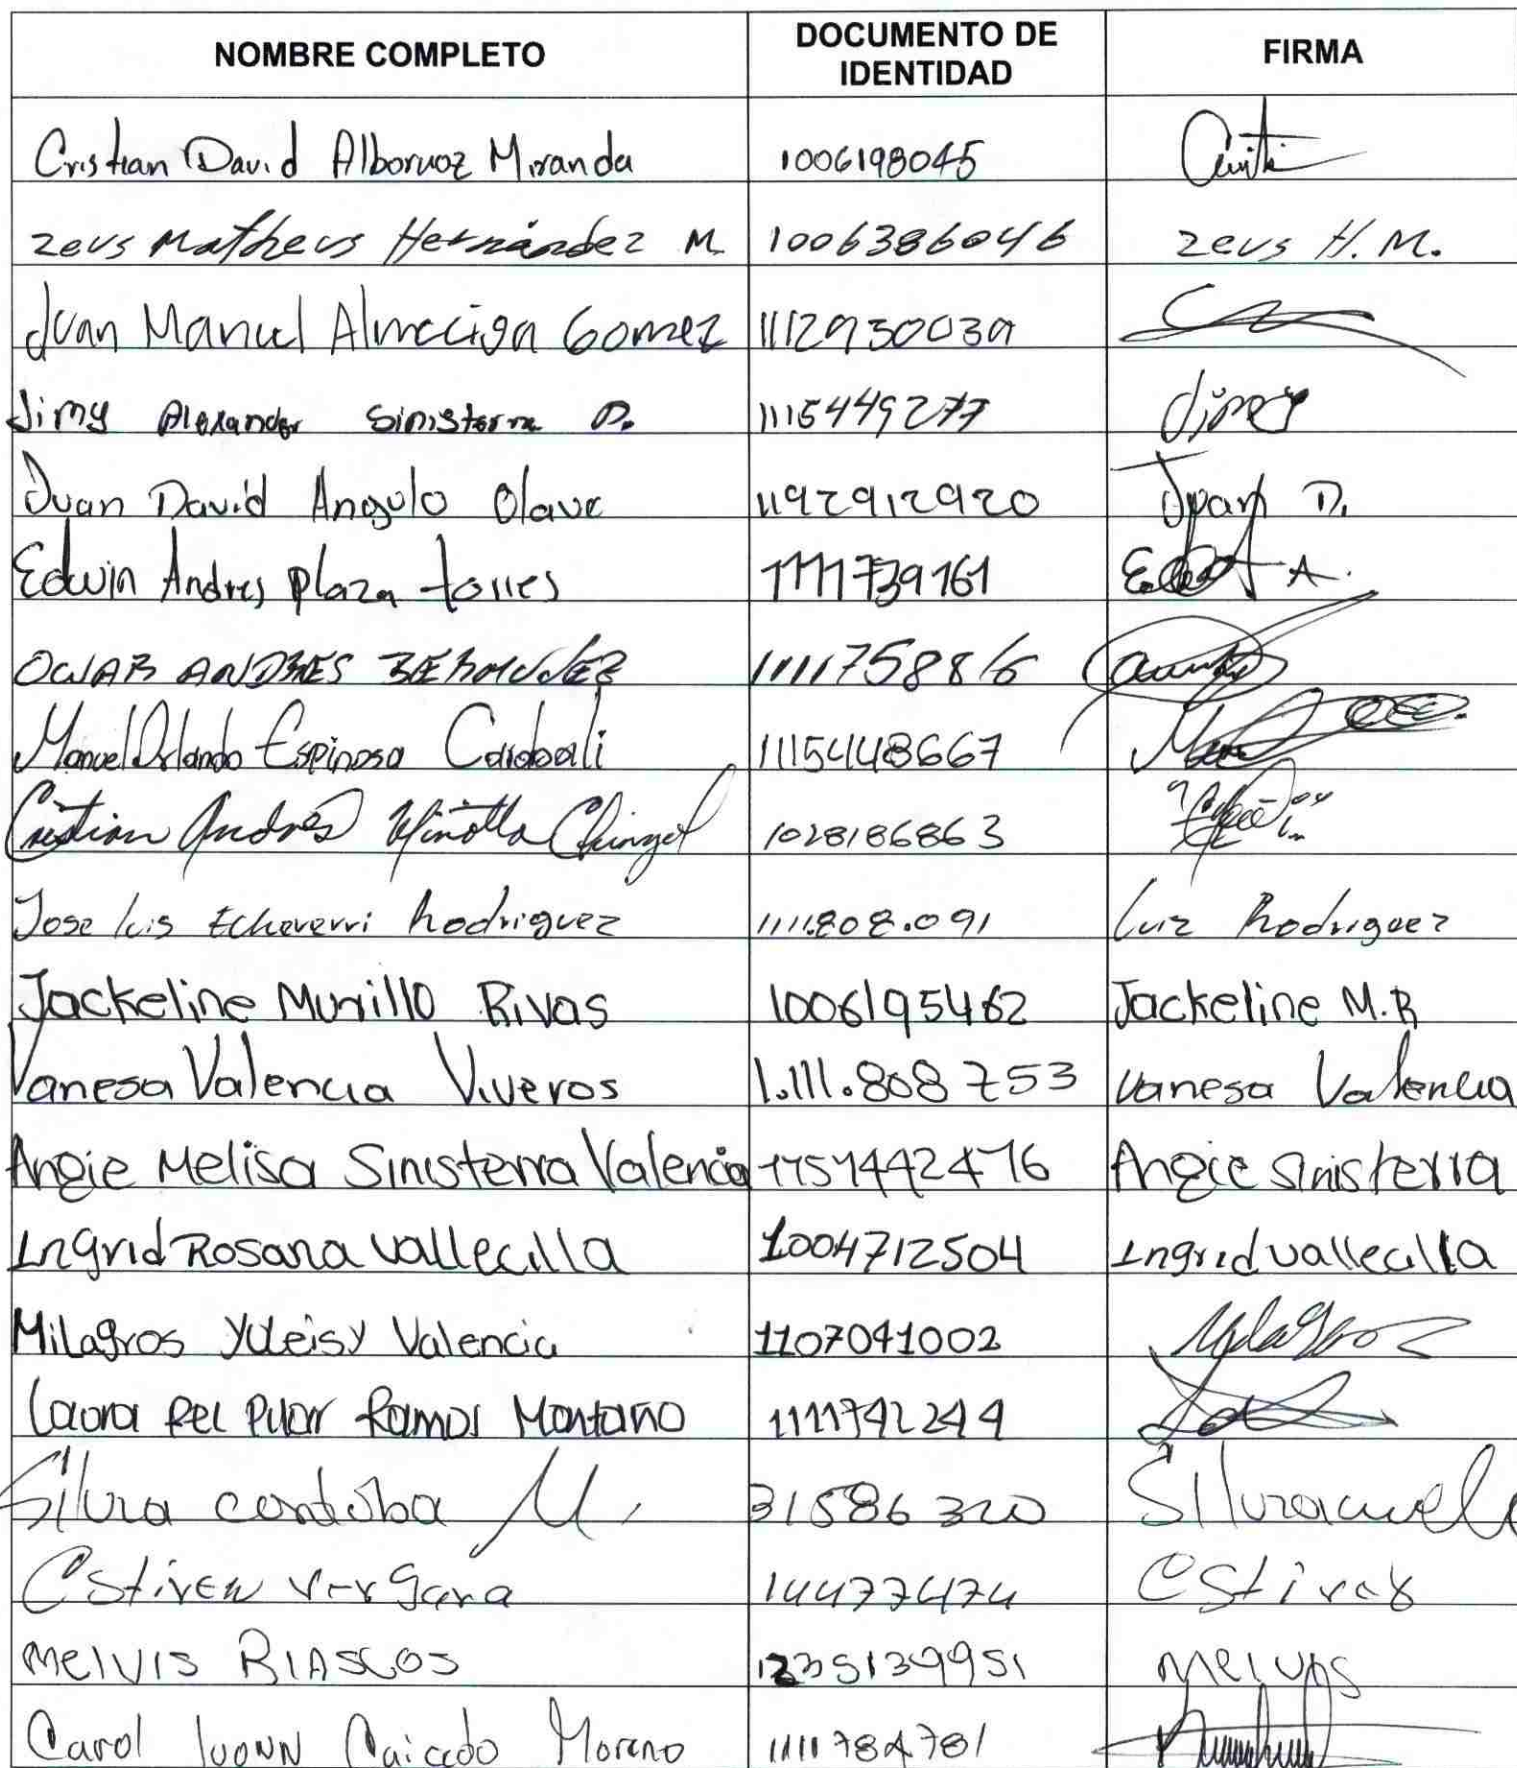 NOMBRE COMPLETO DOCUMENTO DE IDENTIDAD FIRMA
Cristian David Albornoz Miranda 1006198045
Zeus Matheus Hernández M. 1006386046 Zeus H. M.
Juan Manuel Almeciga Gomez 1112930039
Jimy Alexander Sinisterra D. 1115449277 Jimy
Juan David Angulo Olave 1192912920 Juan D.
Edwin Andres Plaza torres 1111739161 A.
ANDRES 1111758816
Manuel Orlando Espinosa Carabali 1115448667
Cristian Andrés 1028186863
Jose luis Echeverri Rodriguez 1111.808.091 Luiz Rodriguez
Jackeline Murillo Rivas 1006195462 Jackeline M.R
Vanesa Valencia Viveros 1.111.808753 Vanesa Valencia
Angie Melisa Sinisterra Valencia 1151442476 Angie Sinisterra
Ingrid Rosana Vallecilla 1004712504 Ingrid Vallecilla
Milagros Yuleisy Valencia 1107041002 Milagros
Laura Del Pilar Ramos Montaño 1111742244
Silvia cordoba M. 31586320
Estiven Vergara 14477474 Estiven
Melvis RIASCOS Melvis
Carol Ivonn Caicedo Moreno 1111784781